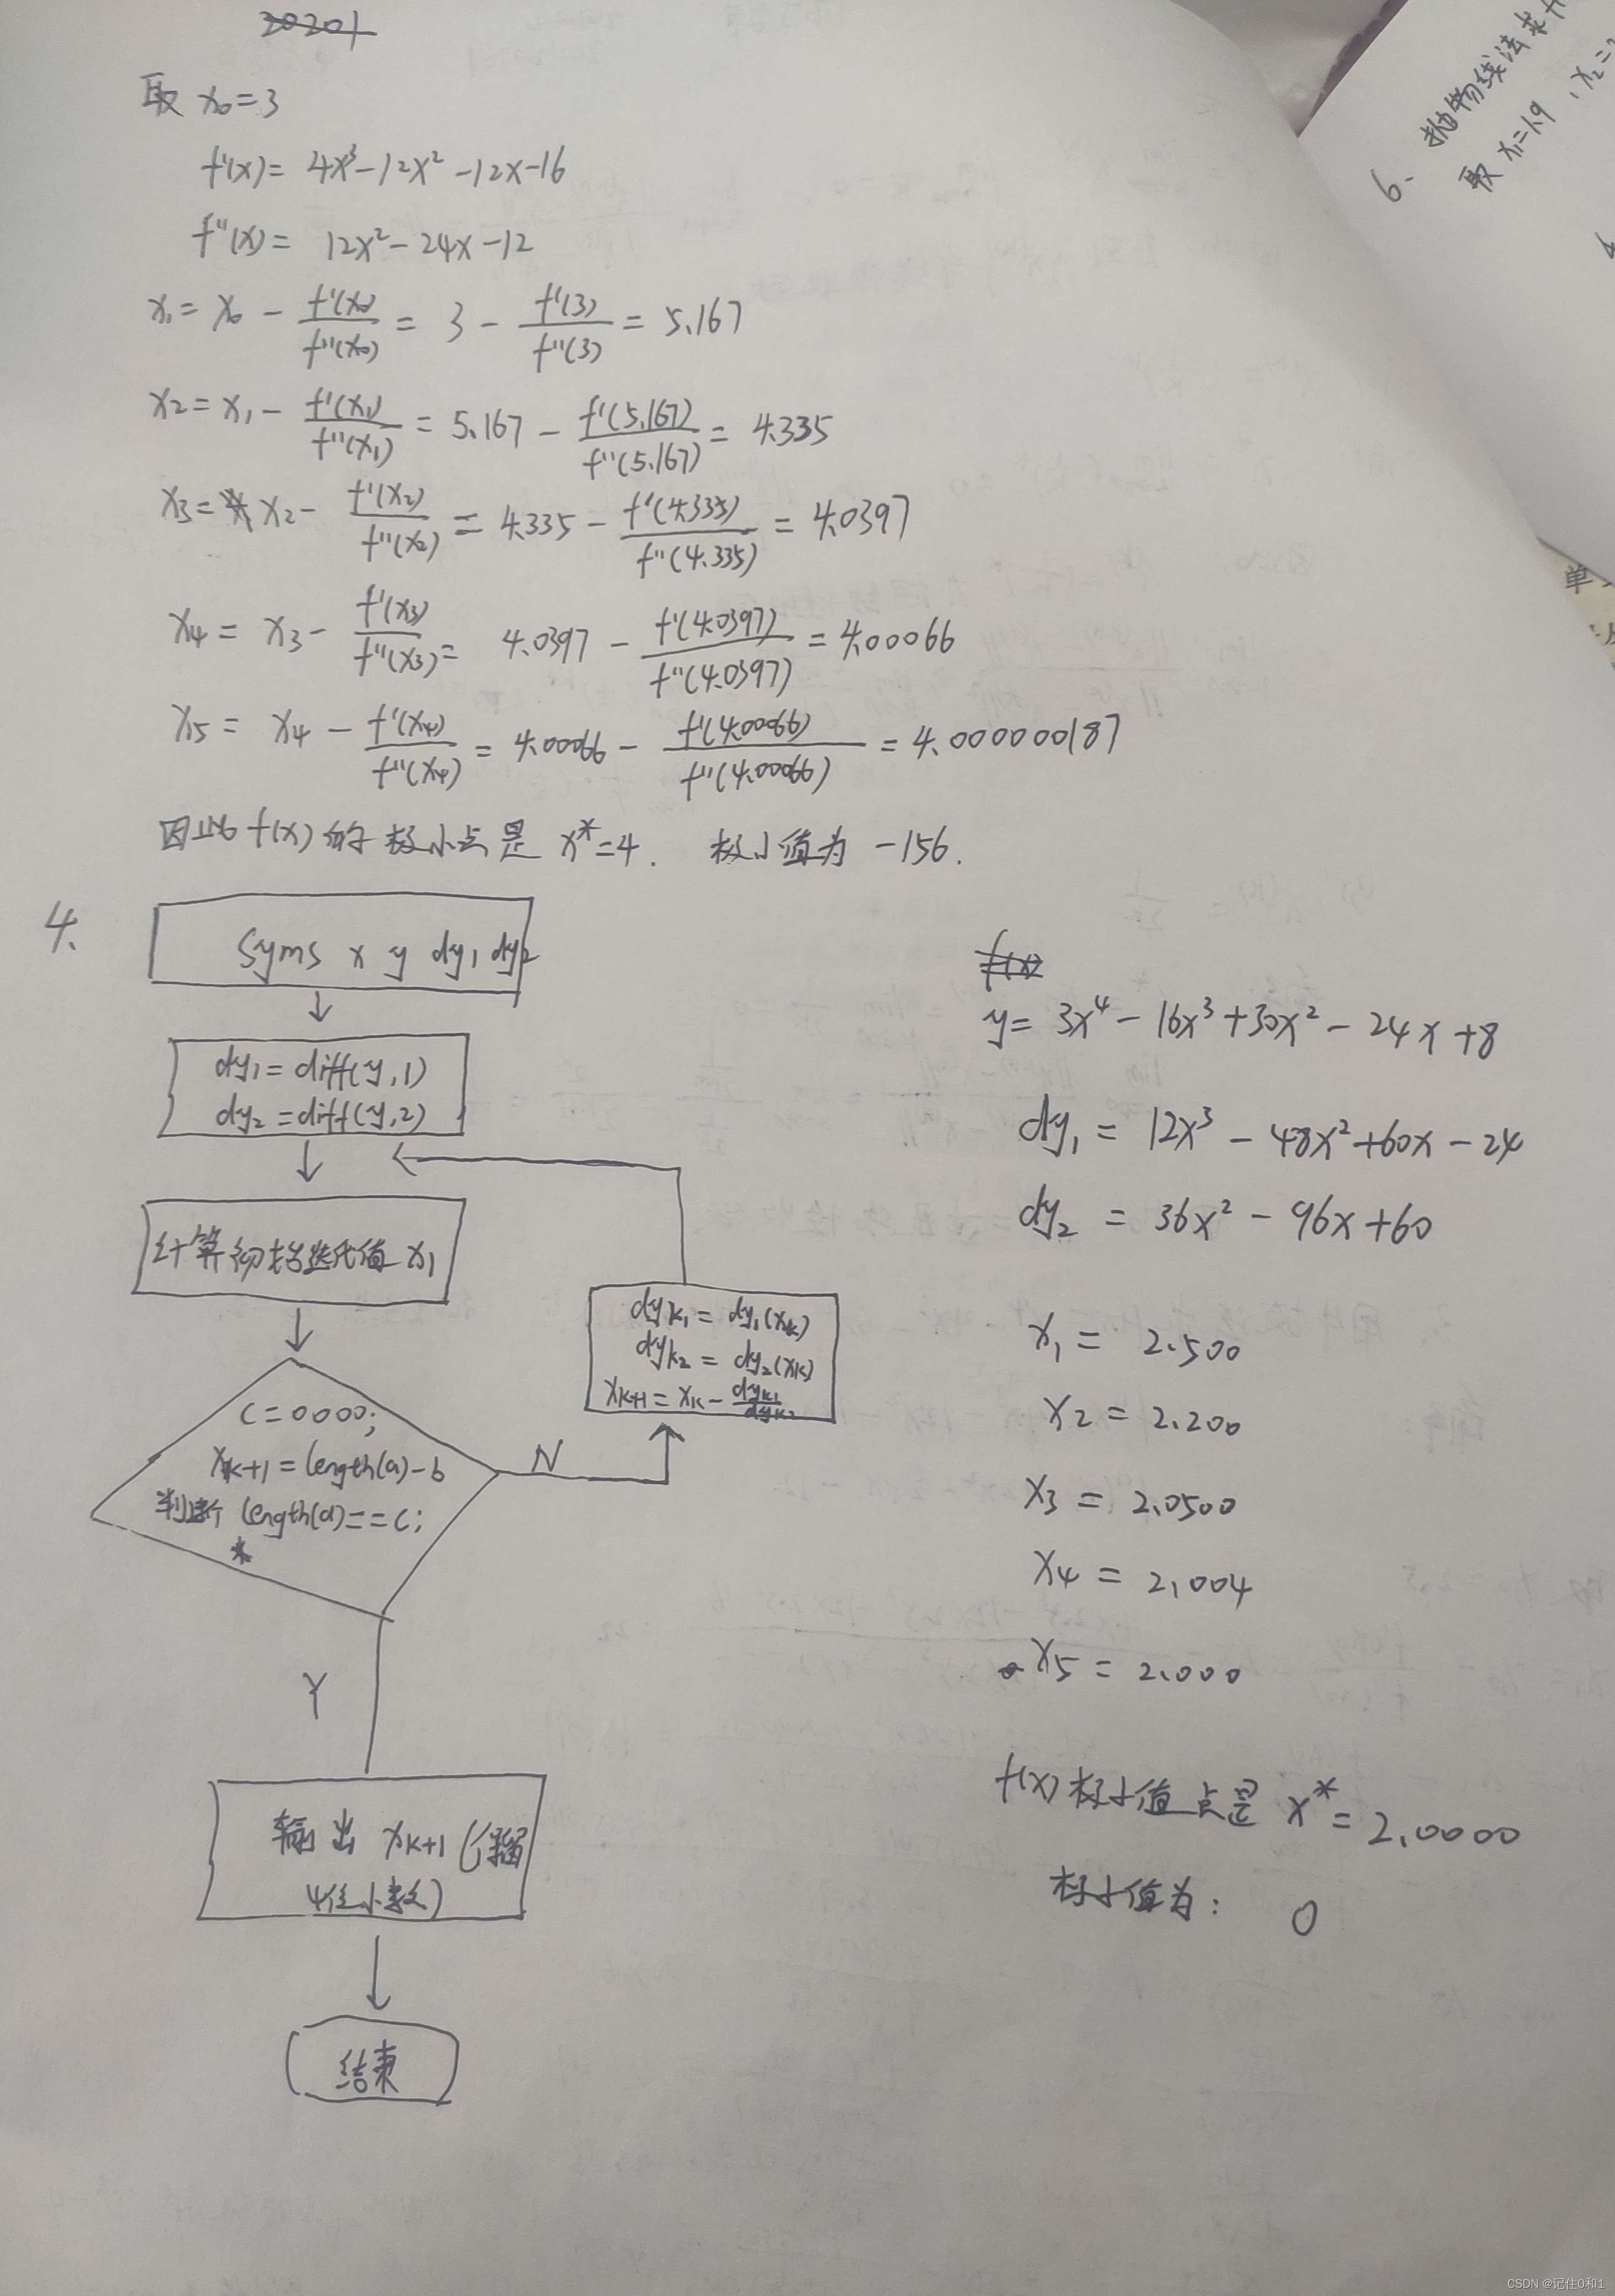 20201
取 x₀=3
f'(x)= 4x³-12x²-12x-16
f''(x)= 12x²-24x-12
x₁= x₀ - f'(x₀)/f''(x₀) = 3 - f'(3)/f''(3) = 5.167
x₂= x₁ - f'(x₁)/f''(x₁) = 5.167 - f'(5.167)/f''(5.167) = 4.335
x₃= x₂ - f'(x₂)/f''(x₂) = 4.335 - f'(4.335)/f''(4.335) = 4.0397
x₄ = x₃ - f'(x₃)/f''(x₃) = 4.0397 - f'(4.0397)/f''(4.0397) = 4.00066
x₅ = x₄ - f'(x₄)/f''(x₄) = 4.00066 - f'(4.00066)/f''(4.00066) = 4.000000187
因此 f(x) 的极小点是 x*=4. 极小值为 -156.
4.
Syms x y dy₁ dy₂
dy₁= diff(y,1)
dy₂ =diff(y,2)
计算初始迭代值 x₁
C=0000;
xk+1 = length(a)-b
判断 length(a)==C;
N
dyk₁ = dy₁(xk)
dyk₂ = dy₂(xk)
xk+1 = xk - dyk₁/dyk₂
Y
输出 xk+1 (保留
4位小数)
结束
f(x)
y= 3x⁴ - 16x³+30x² - 24x +8
dy₁ = 12x³ - 48x²+60x - 24
dy₂ = 36x² - 96x+60
x₁ = 2.500
x₂ = 2.200
x₃ = 2.0500
x₄ = 2.004
x₅ = 2.000
f(x)极小值点是 x* = 2.0000
极小值为: 0
6. 抛物线法求
取 x₁=1.9 , x₂=
单
CSDN @记住0和1